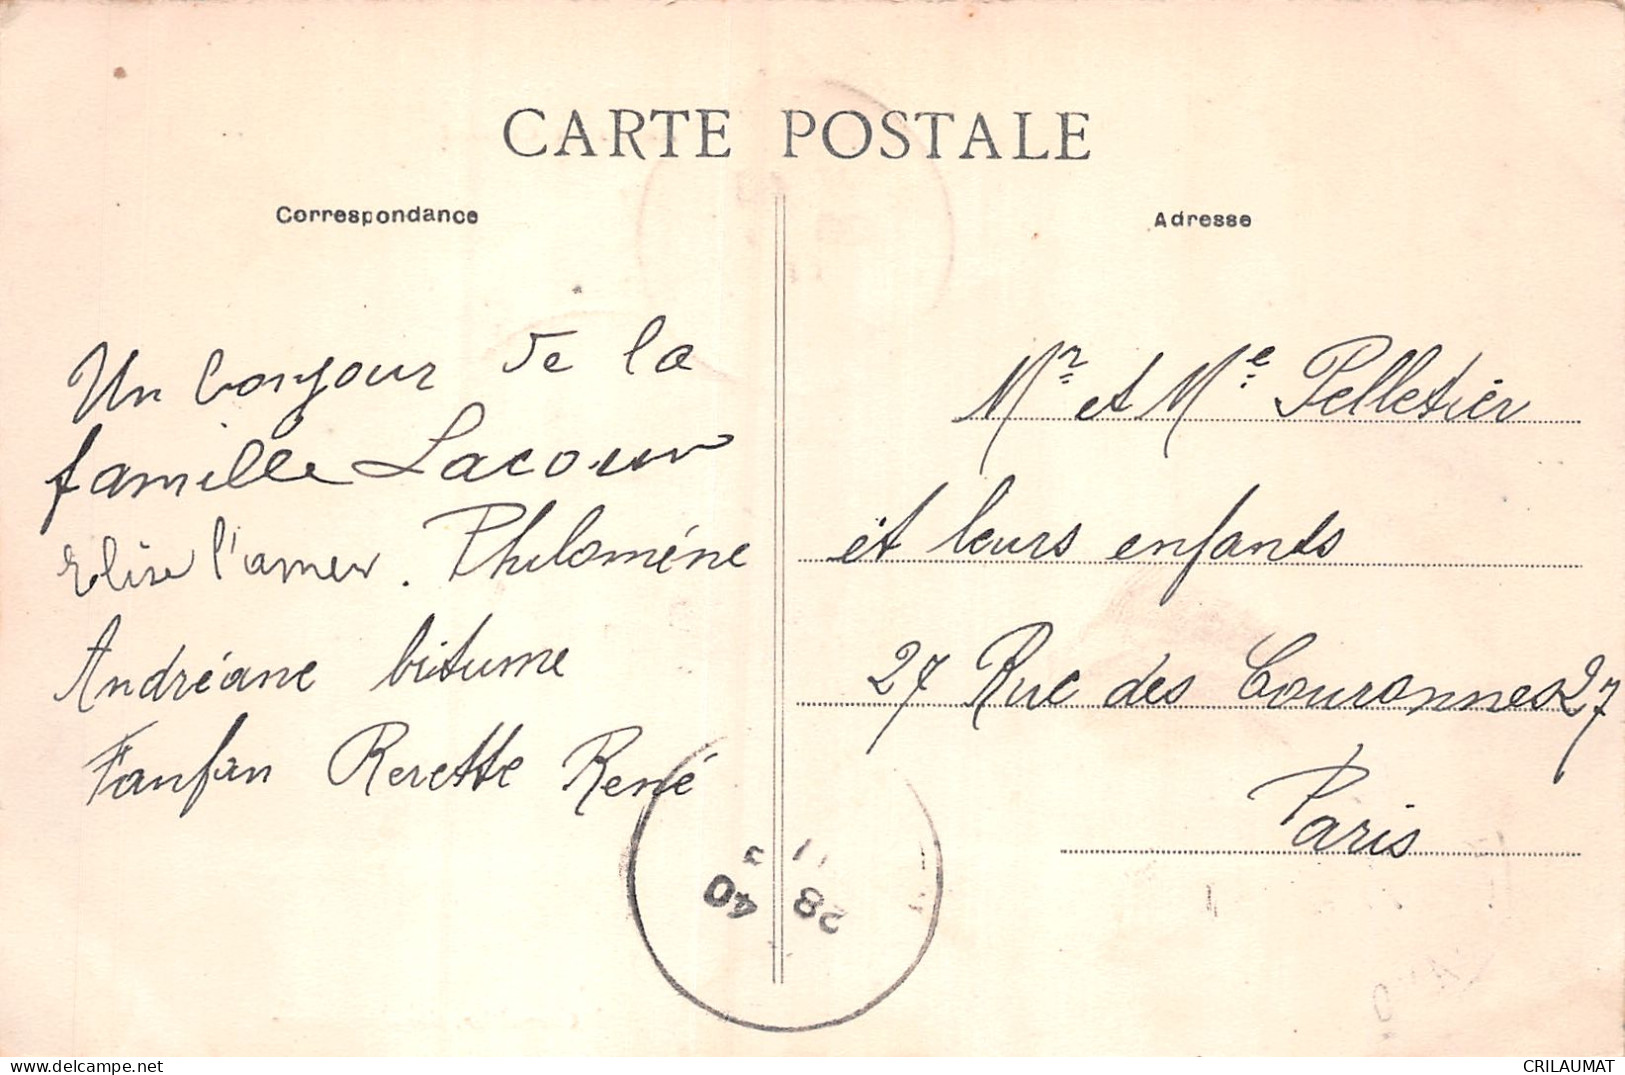 CARTE POSTALE
Correspondance
Un bonjour de la
famille Lacour
Elise l'amer. Philoméne
Andréane bitume
Fanfan Rerette René
Adresse
Mr et Me Pelletier
et leurs enfants
27 Rue des Couronnes 27
Paris
28
40
CRILAUMAT